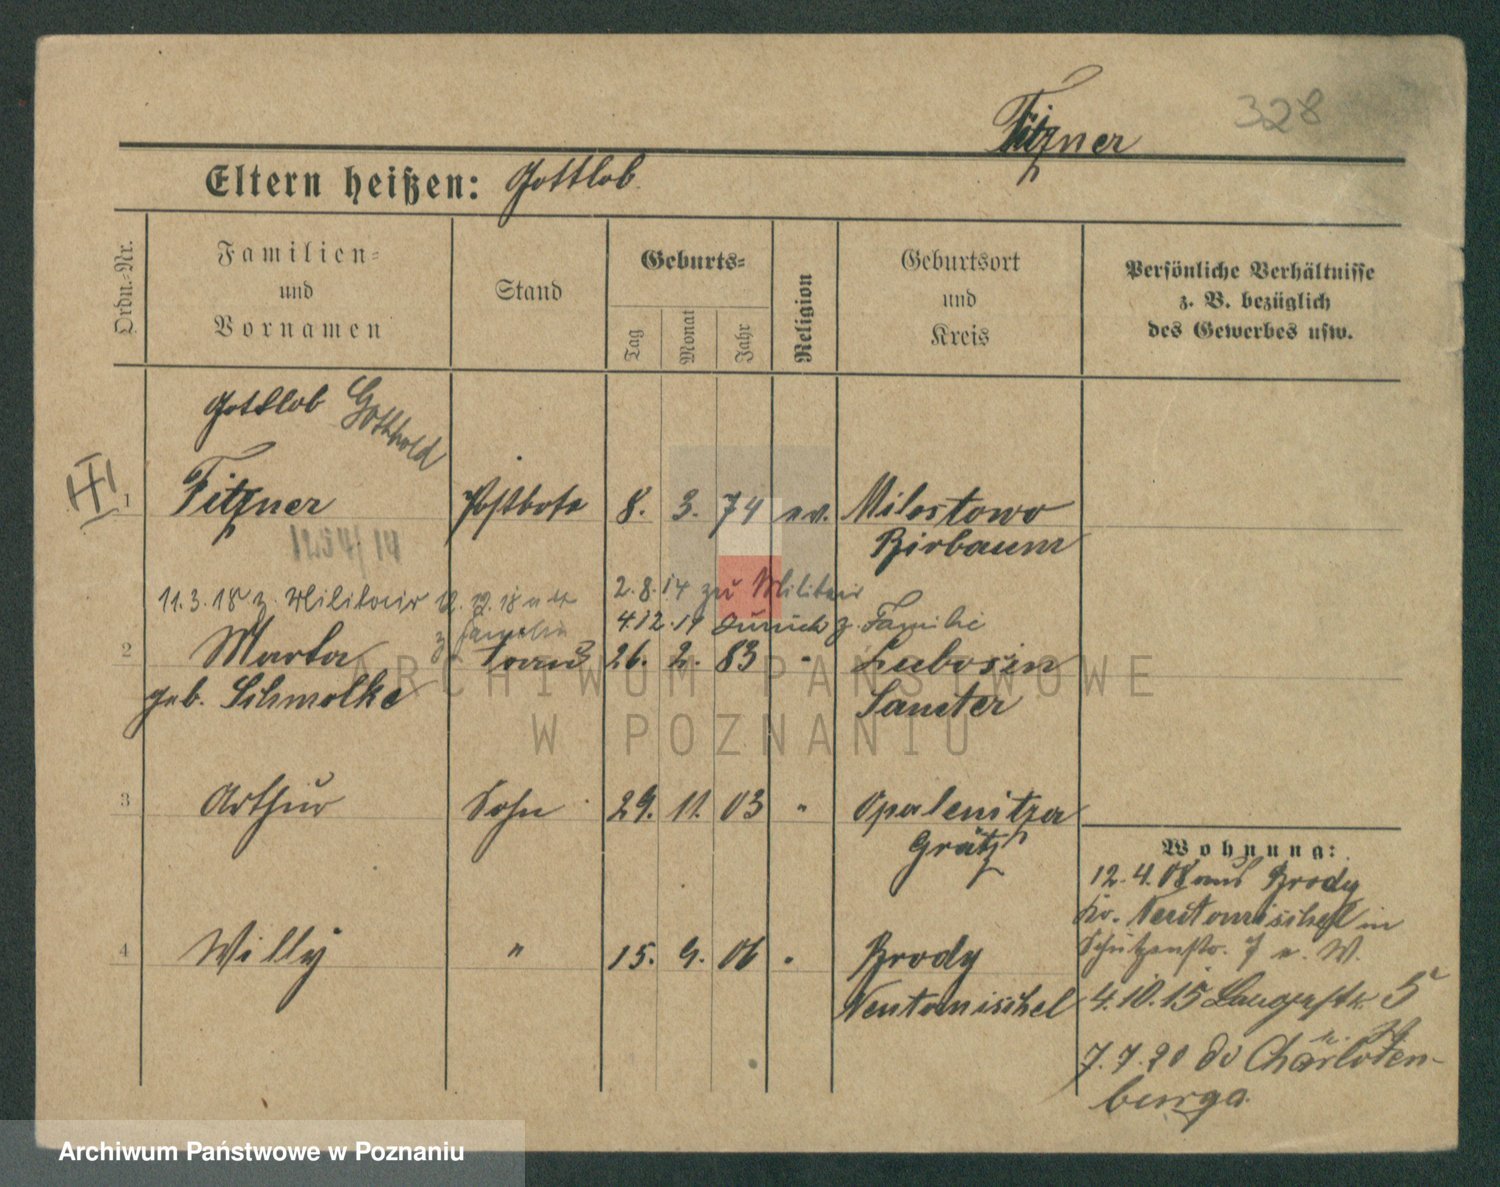 328
Fitzner
Eltern heißen: Gottlob
Ordn.-Nr.
Familien-
und
Vornamen
Stand
Geburts-
Tag
Monat
Jahr
Religion
Geburtsort
und
Kreis
Persönliche Verhältnisse
z. B. bezüglich
des Gewerbes usw.
Gottlob Gotthold
1 Fitzner Postbote 8. 3. 74 ev. Milostowo
Birbaum
1234/14
11.3.18 z. Militair
2.8.14 zu Militair
z Familie
4.12.19 zurück z. Familie
2 Marta Frau 26. 2. 83 " Lubosin
geb. Schmolke Samter
3 Arthur Sohn 29. 11. 03 " Opalenitza
Grätz
4 Willy " 15. 9. 06 " Brody
Neutomischel
Wohnung:
12.4.08 aus Brody
Kr. Neutomischel in
Schützenstr. 7 b. W.
4.10.15 Langestr. 5
7.7.20 do Charloten-
burga
ARCHIWUM PAŃSTWOWE
W POZNANIU
Archiwum Państwowe w Poznaniu